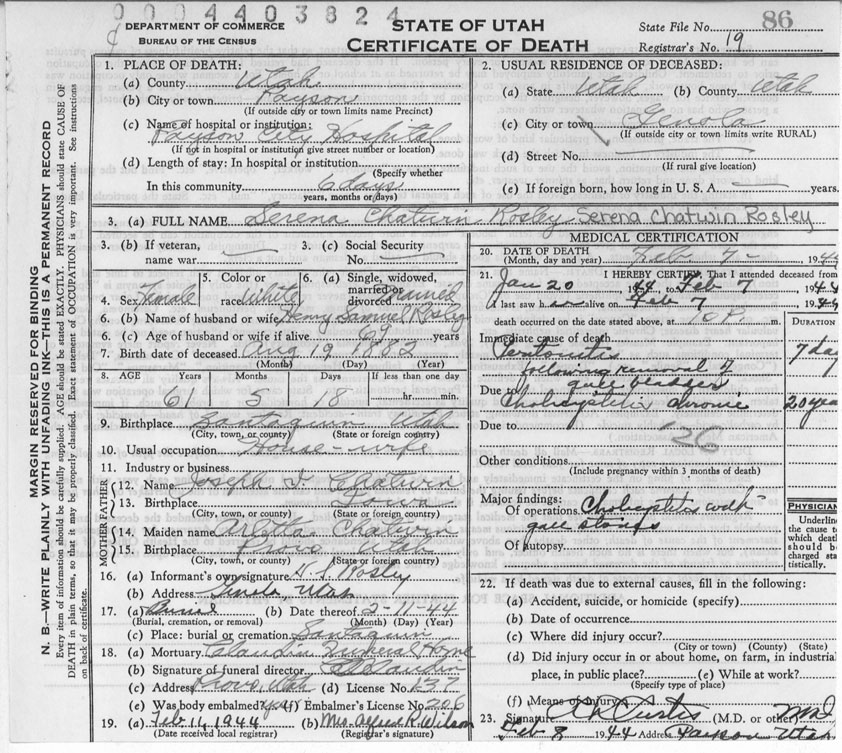 0004403824
DEPARTMENT OF COMMERCE
BUREAU OF THE CENSUS
STATE OF UTAH
CERTIFICATE OF DEATH
State File No. 86
Registrar's No. 19
MARGIN RESERVED FOR BINDING
N. B.—WRITE PLAINLY WITH UNFADING INK—THIS IS A PERMANENT RECORD
Every item of information should be carefully supplied. AGE should be stated EXACTLY. PHYSICIANS should state CAUSE OF
DEATH in plain terms, so that it may be properly classified. Exact statement of OCCUPATION is very important. See instructions
on back of certificate.
1. PLACE OF DEATH:
(a) County Utah
(b) City or town Payson
(If outside city or town limits name Precinct)
(c) Name of hospital or institution:
Payson City Hospital
(If not in hospital or institution give street number or location)
(d) Length of stay: In hospital or institution
(Specify whether
In this community 6 days
years, months or days)
2. USUAL RESIDENCE OF DECEASED:
(a) State Utah (b) County Utah
(c) City or town Genola
(If outside city or town limits write RURAL)
(d) Street No.
(If rural give location)
(e) If foreign born, how long in U. S. A. years.
3. (a) FULL NAME Serena Chatwin Rosley Serena Chatwin Rosley
3. (b) If veteran, name war
3. (c) Social Security No.
4. Sex Female
5. Color or race White
6. (a) Single, widowed, married or divorced Married
6. (b) Name of husband or wife Henry Samuel Rosley
6. (c) Age of husband or wife if alive 69 years
7. Birth date of deceased Aug 19 1882
(Month) (Day) (Year)
8. AGE Years Months Days If less than one day
61 5 18 hr. min.
9. Birthplace Santaquin Utah
(City, town, or county) (State or foreign country)
10. Usual occupation House-wife
11. Industry or business
FATHER
12. Name Joseph Chatwin
13. Birthplace Iowa
(City, town, or county) (State or foreign country)
MOTHER
14. Maiden name Arletta Chatwin
15. Birthplace Provo Utah
(City, town, or county) (State or foreign country)
16. (a) Informant's own signature H S Rosley
(b) Address Genola, Utah
17. (a) Burial (b) Date thereof 2-11-44
(Burial, cremation, or removal) (Month) (Day) (Year)
(c) Place: burial or cremation Santaquin
18. (a) Mortuary Claudin Funeral Home
(b) Signature of funeral director Claudin
(c) Address Provo, Utah (d) License No. 137
(e) Was body embalmed? yes (f) Embalmer's License No. 206
19. (a) Feb 11, 1944 (b) Mrs. Alfred R. Wilson
(Date received local registrar) (Registrar's signature)
MEDICAL CERTIFICATION
20. DATE OF DEATH Feb 7- 1944
(Month, day and year)
21. I HEREBY CERTIFY, That I attended deceased from
Jan 20 1944, to Feb 7 1944
I last saw her alive on Feb 7 1944
death occurred on the date stated above, at 10 P. m.
DURATION
Immediate cause of death
Peritonitis 7 day
following removal of
gall bladder
Due to Cholecystitis chronic 20 year
Due to
126
Other conditions
(Include pregnancy within 3 months of death)
Major findings:
Of operations Cholecystitis with
gall stones
Of autopsy
PHYSICIAN
Underline
the cause to
which death
should be
charged sta-
tistically.
22. If death was due to external causes, fill in the following:
(a) Accident, suicide, or homicide (specify)
(b) Date of occurrence
(c) Where did injury occur?
(City or town) (County) (State)
(d) Did injury occur in or about home, on farm, in industrial
place, in public place? (e) While at work?
(Specify type of place)
(f) Means of injury
23. Signature Curtis (M.D. or other) M D
Feb 8 1944 Address Payson Utah